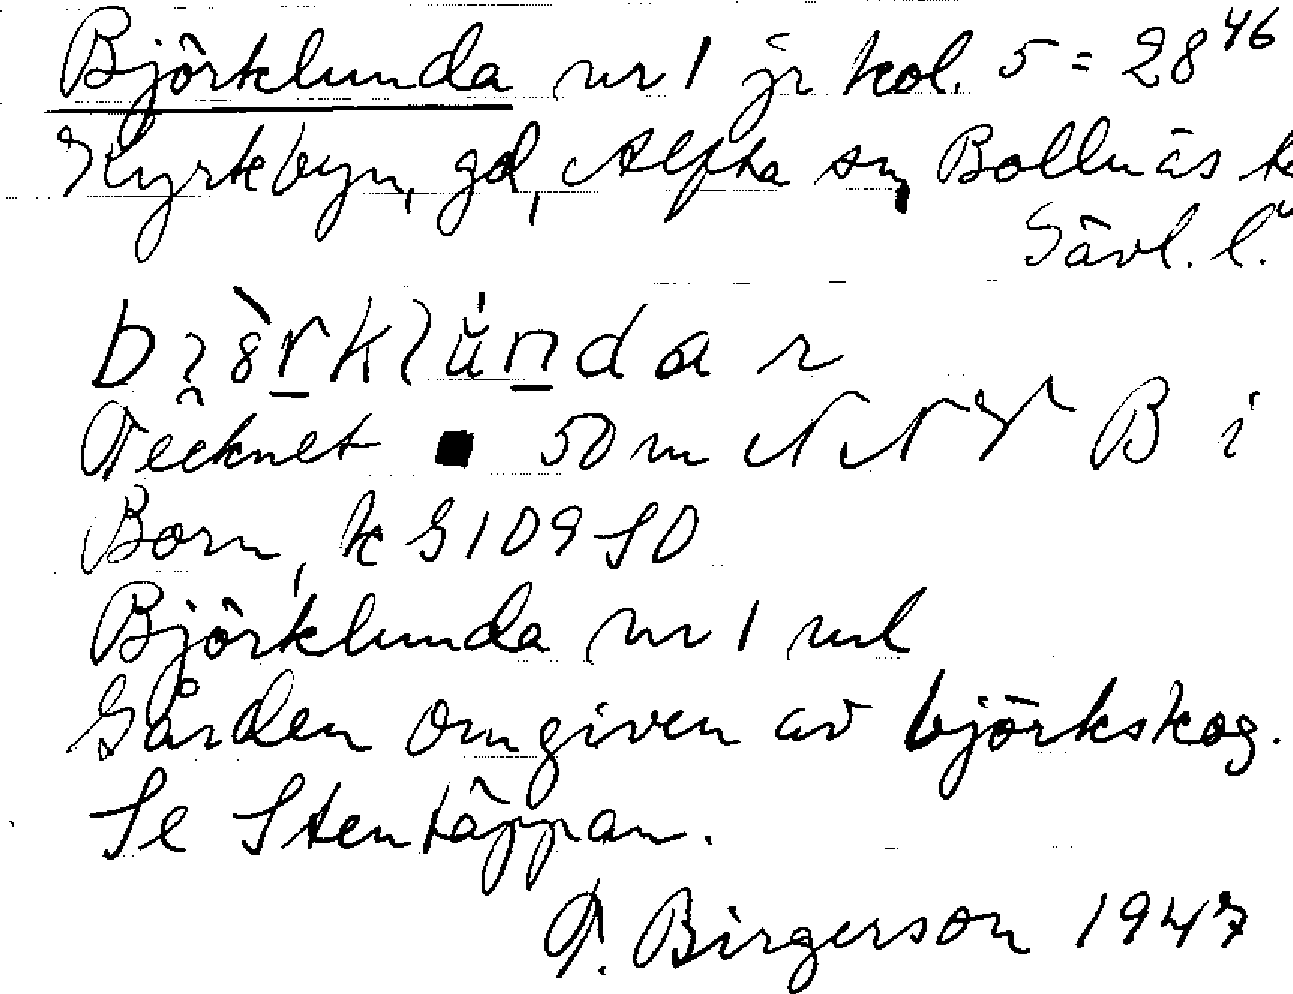 Björklunda nr 1 jr kol. 5 = 28⁴⁶
Kyrkbyn, gd, Alfta sn, Bollnäs k
Gävl. l.
Tecknet ■ 50 m NNV B i
Born, k G109 SO
Björklunda nr 1 url
Gården omgiven av björkskog.
Se Stentäppan.
T. Birgerson 1947